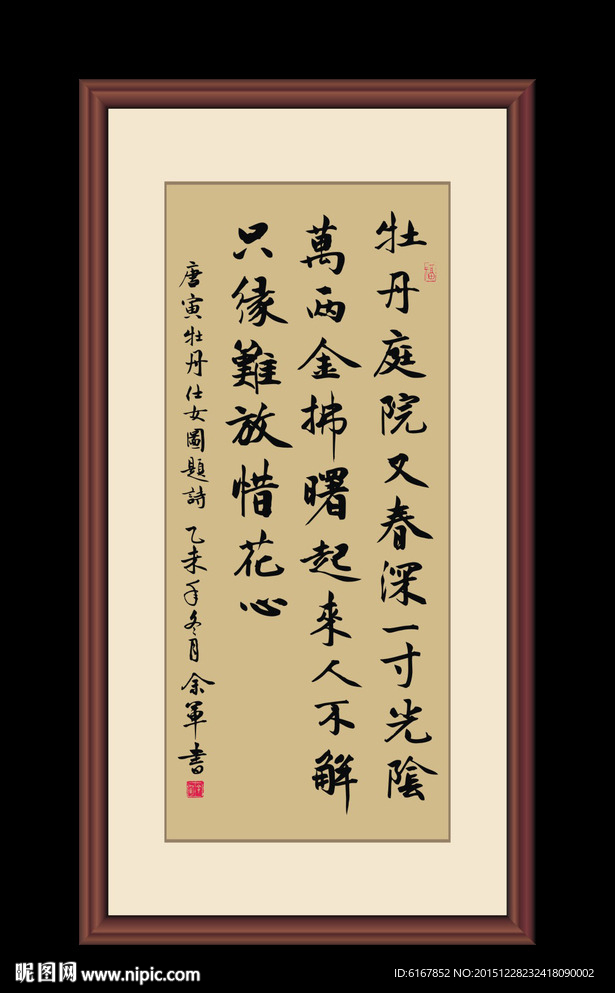 牡丹庭院又春深一寸光陰
萬兩金拂曙起來人不解
只缘難放惜花心
唐寅牡丹仕女圖題詩 乙未年冬月 余軍書
昵图网 www.nipic.com
ID:6167852 NO:20151228232418090002